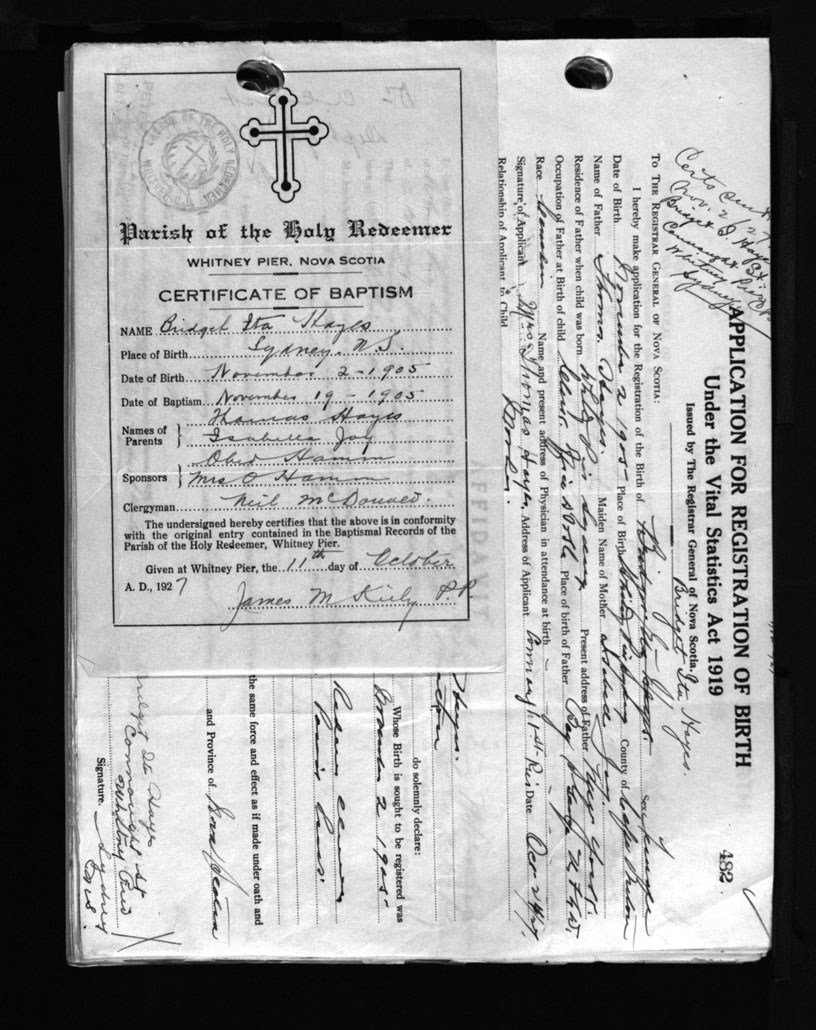 Parish of the Holy Redeemer
WHITNEY PIER, NOVA SCOTIA
CERTIFICATE OF BAPTISM
NAME Bridget Ita Hayes
Place of Birth Sydney, N.S.
Date of Birth November 2 - 1905
Date of Baptism November 19 - 1905
Names of Parents } Thomas Hayes
Isabella Joy
Sponsors } Obed Hamm
Mrs O Hamm
Clergyman Neil McDonald.
The undersigned hereby certifies that the above is in conformity
with the original entry contained in the Baptismal Records of the
Parish of the Holy Redeemer, Whitney Pier.
Given at Whitney Pier, the 11th day of October
A. D., 1927
James M Kiely P.P.
482
APPLICATION FOR REGISTRATION OF BIRTH
Under the Vital Statistics Act 1919
Issued by The Registrar General of Nova Scotia.
Bridget Ita Hayes.
Nov. 2/27
Bridget I Hayes
Whitney Pier
Sydney
TO THE REGISTRAR GENERAL OF NOVA SCOTIA:
I hereby make application for the Registration of the Birth of Bridget Ita Hayes. Sex female
Date of Birth November 2 1905 Place of Birth Whitney Pier Sydney County of Cape Breton
Name of Father Thomas Hayes. Maiden Name of Mother Isabella Joy.
Residence of Father when child was born Whitney Pier Sydney Present address of Father New York.
Occupation of Father at Birth of child Place of birth of Father
Race Name and present address of Physician in attendance at birth
Signature of Applicant Mrs. Thomas Hayes, Address of Applicant Connaught St. Pier Date Oct 24/27
Relationship of Applicant to Child Mother.
AFFIDAVIT
do solemnly declare:
Whose Birth is sought to be registered was
2 1905
the same force and effect as if made under oath and
and Province of Nova Scotia
Bridget Ita Hayes
Connaught St
Whitney Pier
Sydney
N.S.
Signature.